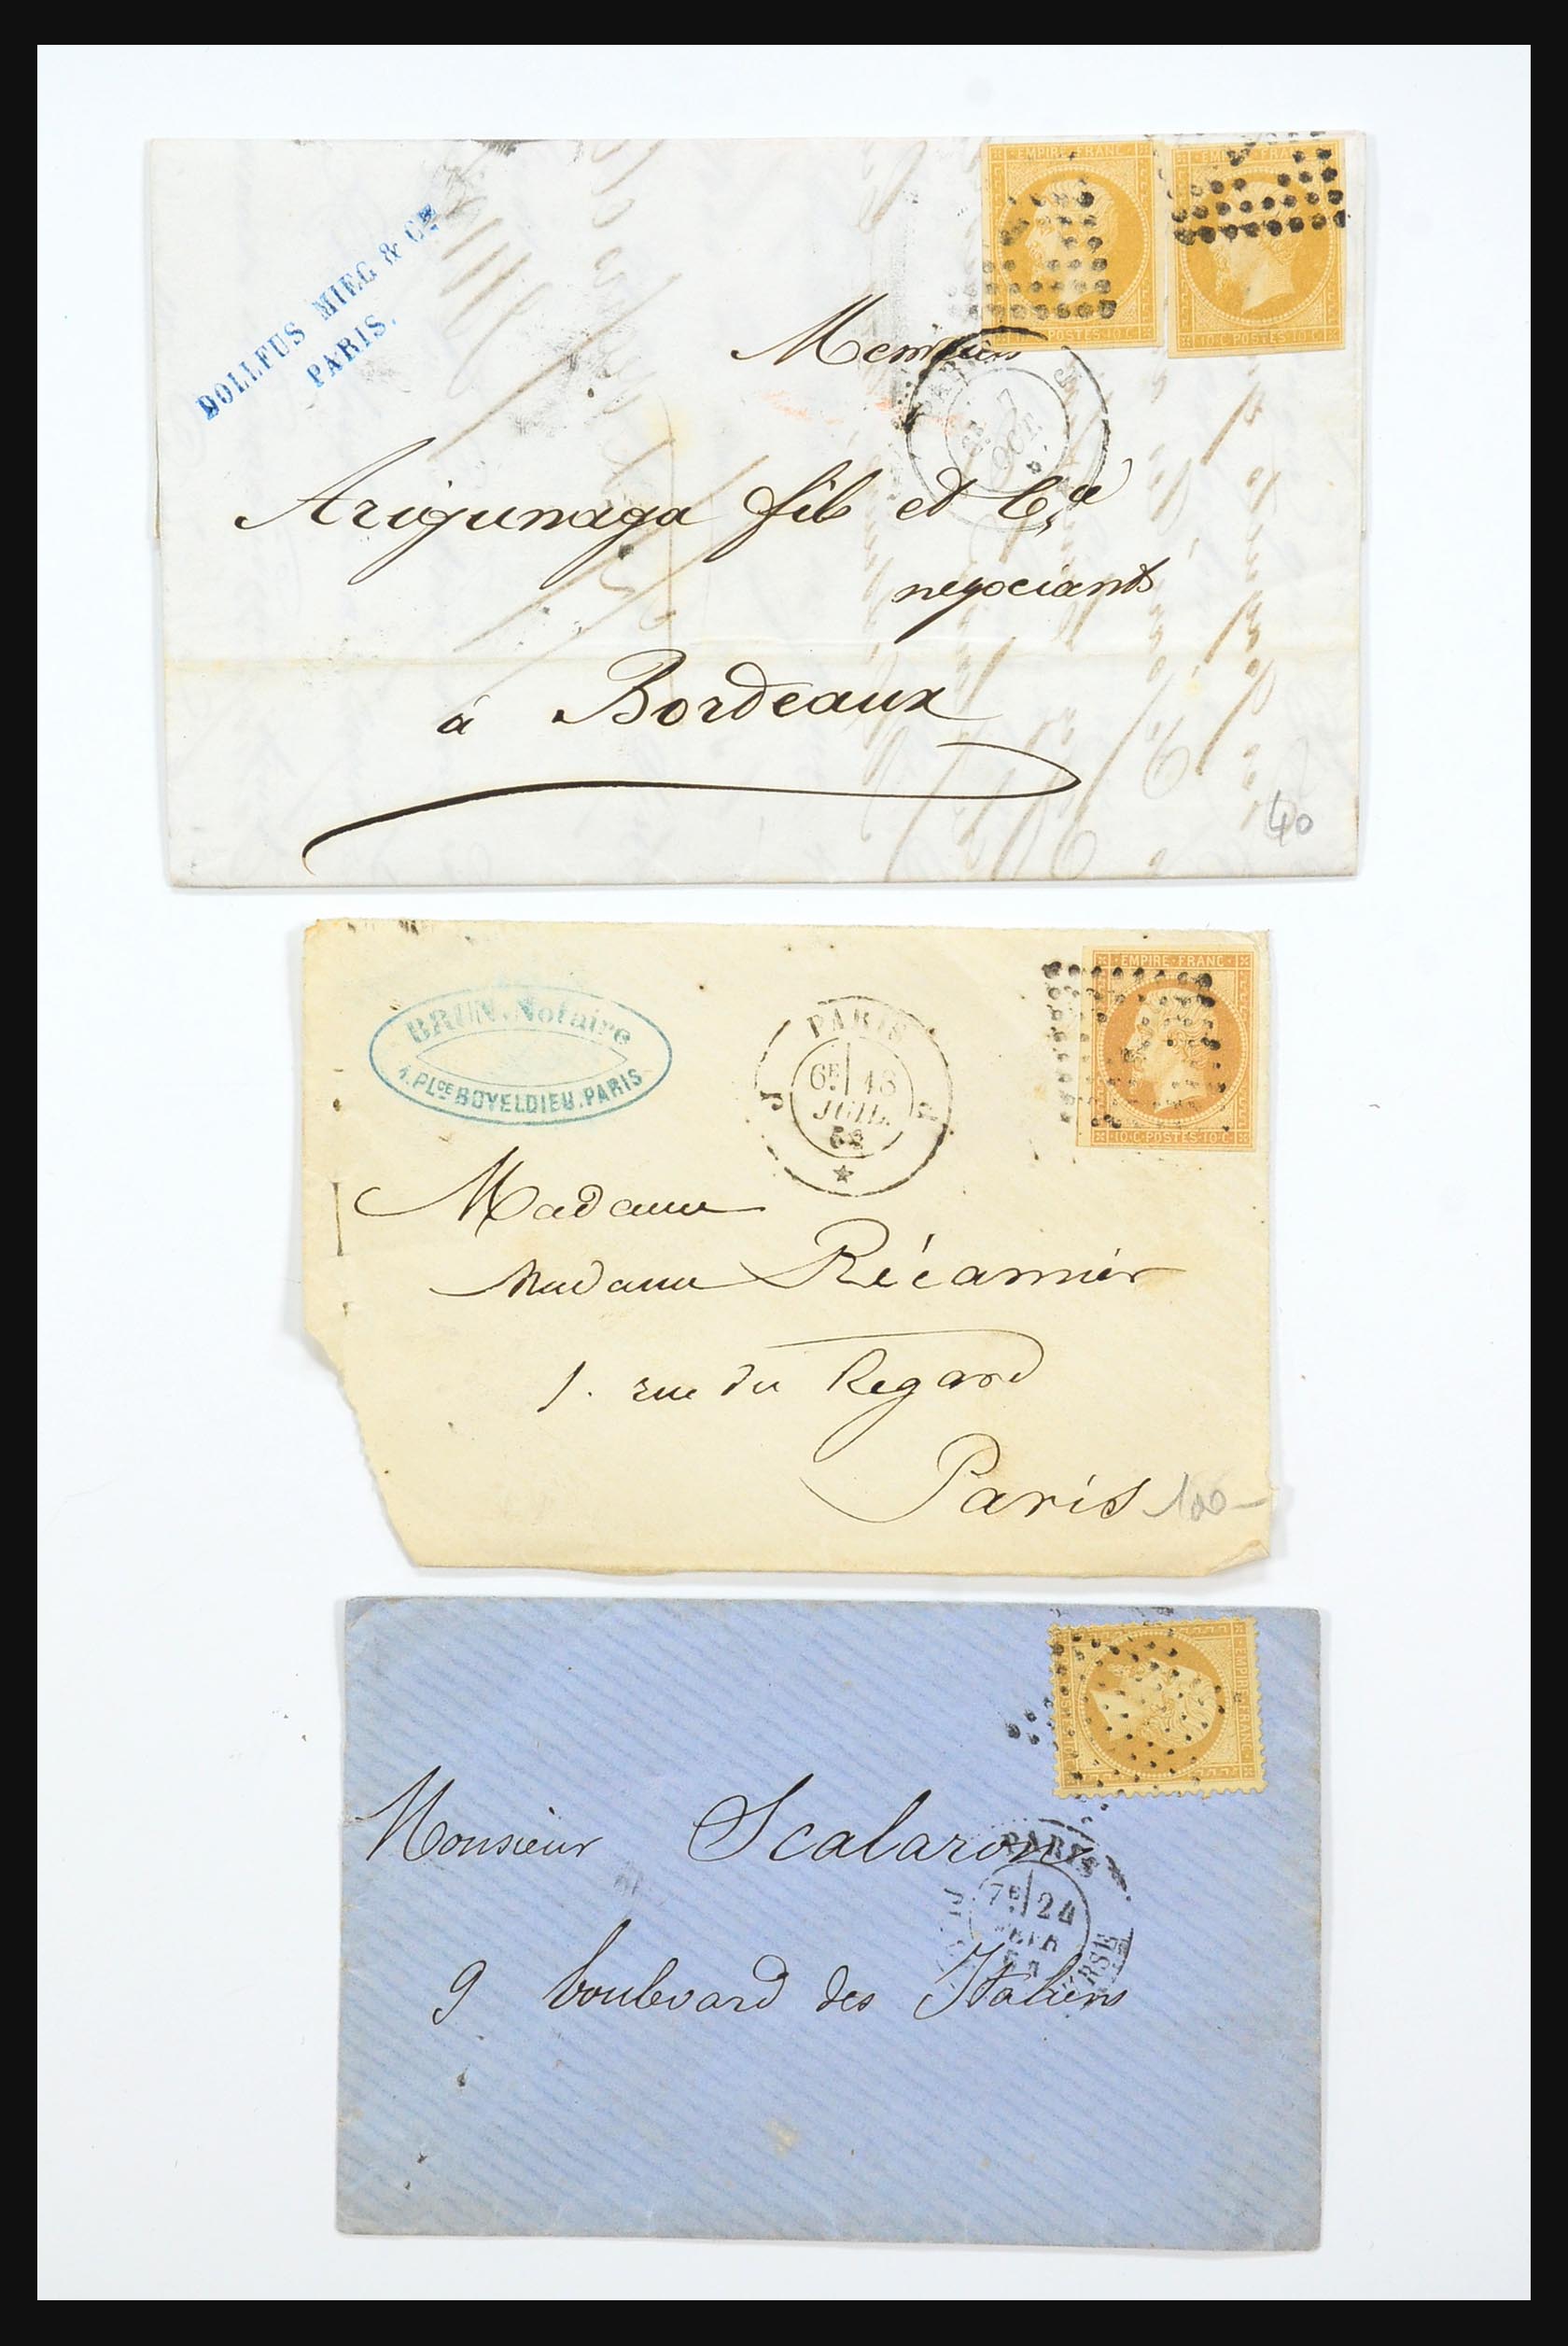 DOLLFUS MIEG & CIE
PARIS.
EMPIRE FRANC
POSTES 10 C
EMPIRE FRANC
10 C POSTES 10 C
PARIS
7
OCT.
Messieurs
Arigunaga fils et Cie
negociants
à Bordeaux
40
BRUN, Notaire
4, PLCE BOYELDIEU, PARIS
PARIS
6E 18
JUIL.
EMPIRE FRANC
10 C POSTES 10 C
Madame
Madame Récamier
1. rue du Regard
Paris
100-
EMPIRE FRANC
Monsieur Scalarone
PARIS
7E 24
9 boulevard des Italiens